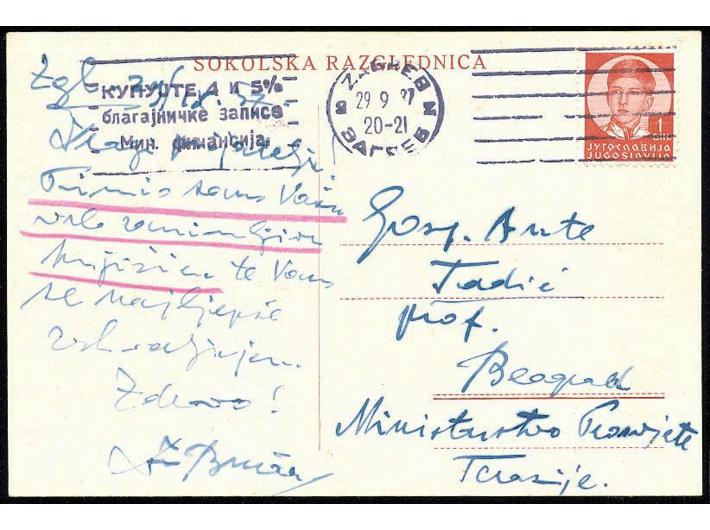 SOKOLSKA RAZGLEDNICA
КУПУЈТЕ 4 И 5%
благајничке записе
Мин. финансија
ZAGREB
29 9 37
20-21
ЗАГРЕБ
1
ЈУГОСЛАВИЈА
JUGOSLAVIJA
Zgb 29/IX 37.
Dragi
Primio sam Vašu
vrlo zanimljivu
knjižicu te Vam
se najljepše
zahvaljujem.
Zdravo!
Gosp. Ante
Tadić
prof.
Beograd
Ministarstvo Prosvjete
Terazije.